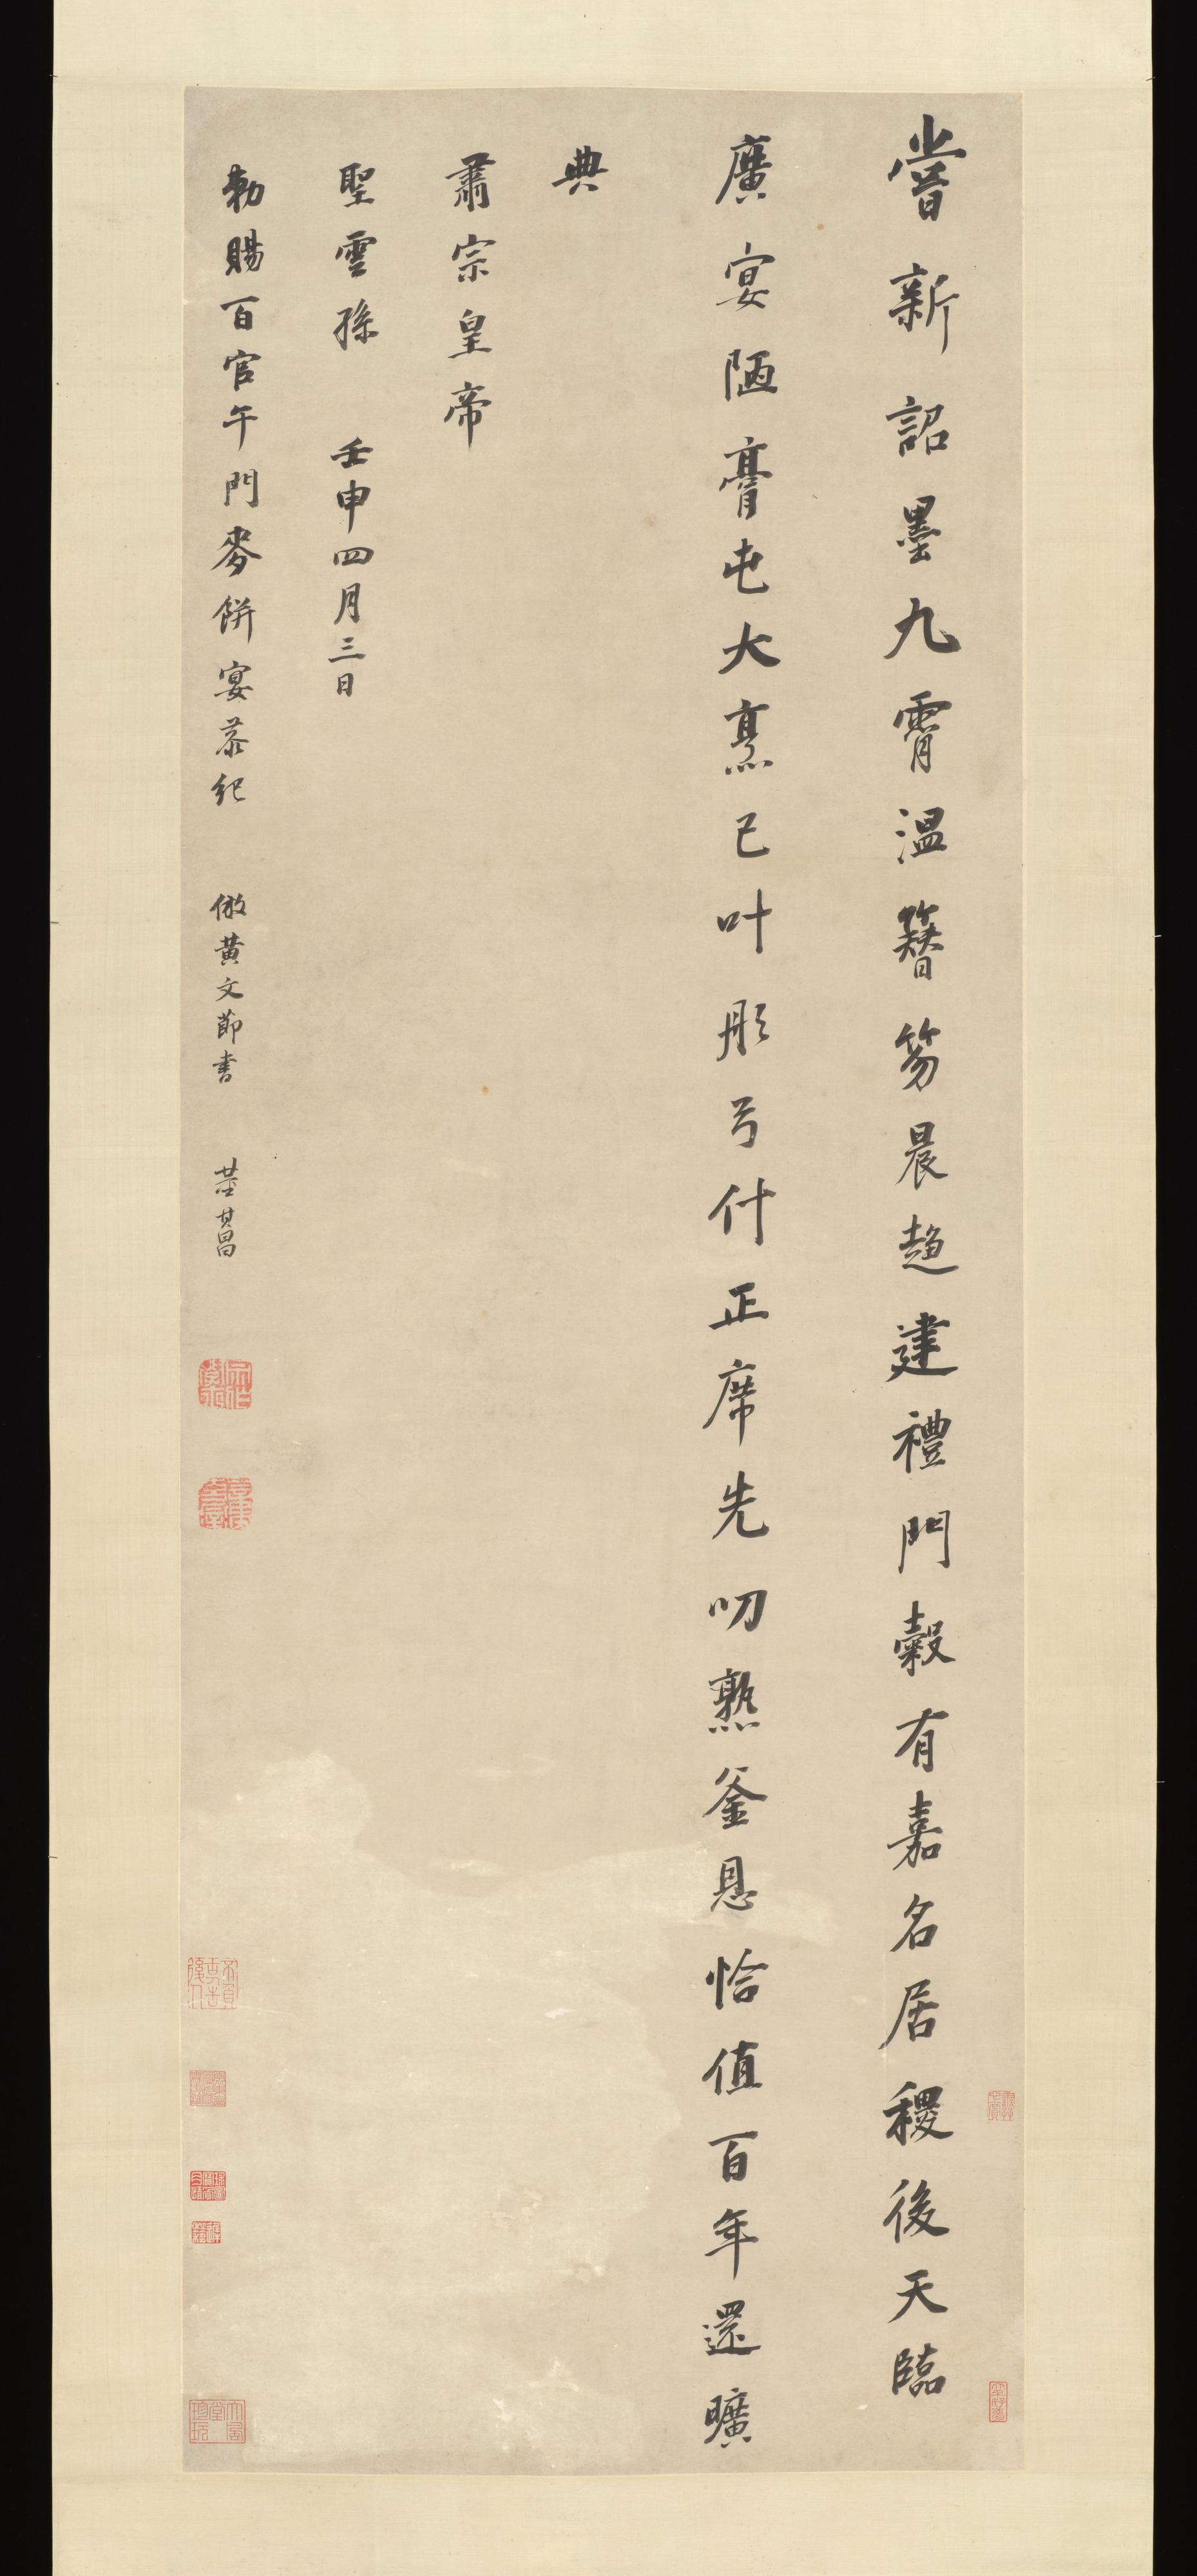 嘗新詔墨九霄温簪笏晨趨建禮門穀有嘉名居稷後天臨
廣宴陋膏屯大烹已叶彤弓什正席先叨熟釜恩恰值百年還曠
典
肅宗皇帝
聖雲孫 壬申四月三日
勅賜百官午門麥餅宴恭紀 倣黃文節書 董其昌